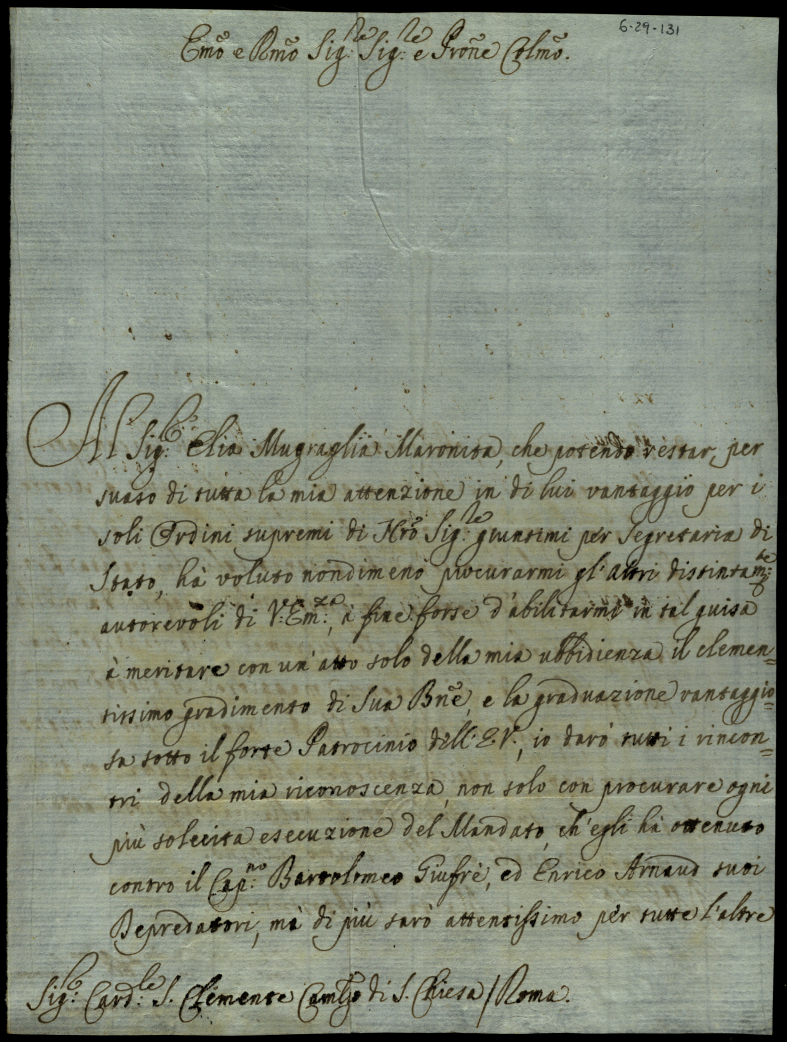 6-29-131
Emo e Rmo Sig:re Sig:re e Prone Colmo.
Al Sig:r Elia Mugraglia Maronita, che potendo restar, per
suaso di tutta la mia attenzione in di lui vantaggio per i
soli Ordini supremi di Nro Sig:re giuntimi per Segretaria di
Stato, hà voluto nondimeno procurarmi gl'altri distintam:te
autorevoli di V: Em:za, à fine forse d'abilitarmi in tal guisa
à meritare con un'atto solo della mia ubbidienza il clemen=
tissimo gradimento di Sua Bne, e la graduazione vantaggio=
sa sotto il forte Patrocinio dell'E.V., io darò tutti i rincon=
tri della mia riconoscenza, non solo con procurare ogni
più solecita esecuzione del Mandato, ch'egli hà ottenuto
contro il Cap:no Bartolomeo Giufrè, ed Enrico Arnaud suoi
Depredattori, mà di più sarò attentissimo per tutte l'altre
Sig:r Card:le S. Clemente Camlgo di S. Chiesa / Roma.